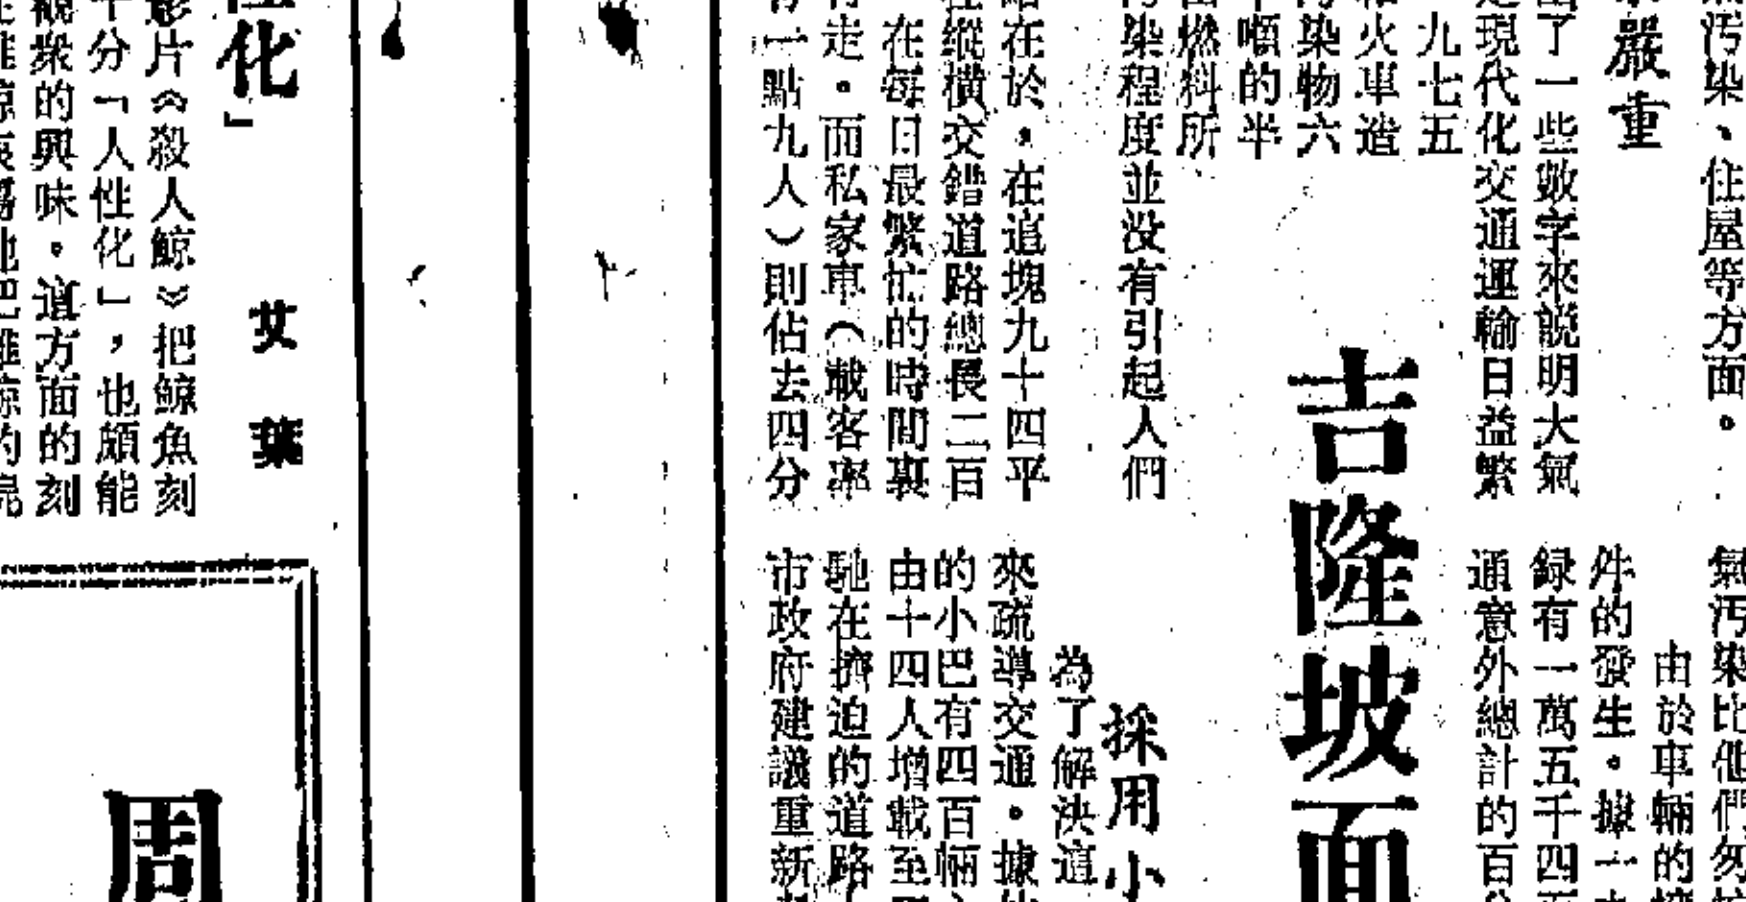 污染、住屋等方面。
嚴重
了一些數字來說明大氣
現代化交通運輸日益繁
九七五
火車造
染物六
噸的半
燃料所
染程度並没有引起人們
吉隆坡面
在於，在這塊九十四平
縱橫交錯道路總長二百
在每日最繁忙的時間裏
走。而私家車（載客率
一點九人）則佔去四分
氣污染比他們
由於車輛的
件的發生。據一
録有一萬五千四
通意外總計的百
採用小
為了解決這
來疏導交通。據
的小巴有四百輛
由十四人增載至
馳在擠迫的道路
市政府建議重新
化」
艾葉
影片《殺人鯨》把鯨魚刻
十分「人性化」，也頗能
觀衆的興味。這方面的刻
周